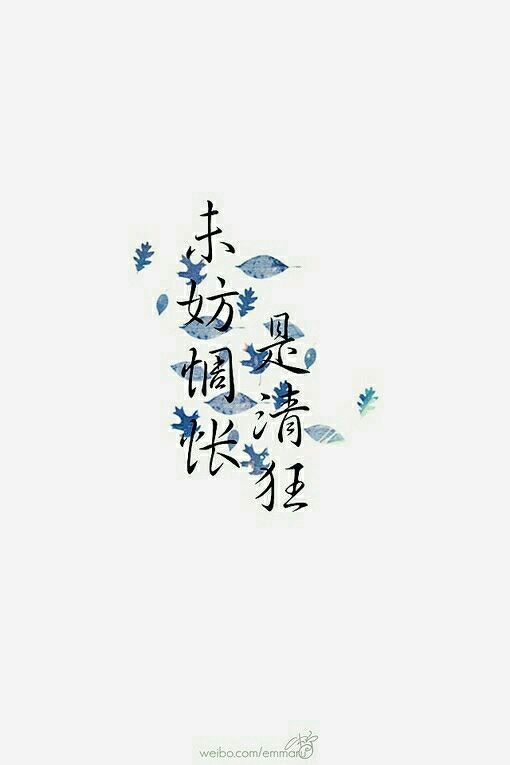 未妨惆怅
是清狂
weibo.com/emmaru